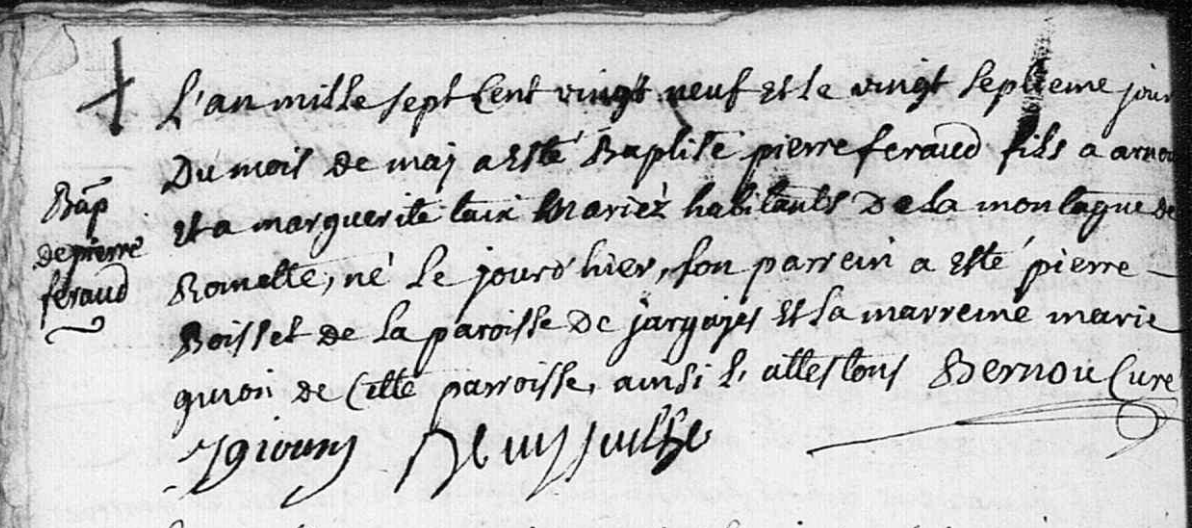 L'an mille sept Cent vingt neuf Et le vingt septieme jour
Du mois de maj a Esté Baptisé pierre feraud fils a arnou
Et a marguerite taix Mariéz habitants De la montagne de
Romette, né Le jourd'hier, son parrein a Esté pierre
Boisset de la paroisse De jarjajes Et la marreine marie
de Cette parroisse, ainsi L'attestons Bernou Curé
Bap
de pierre
feraud